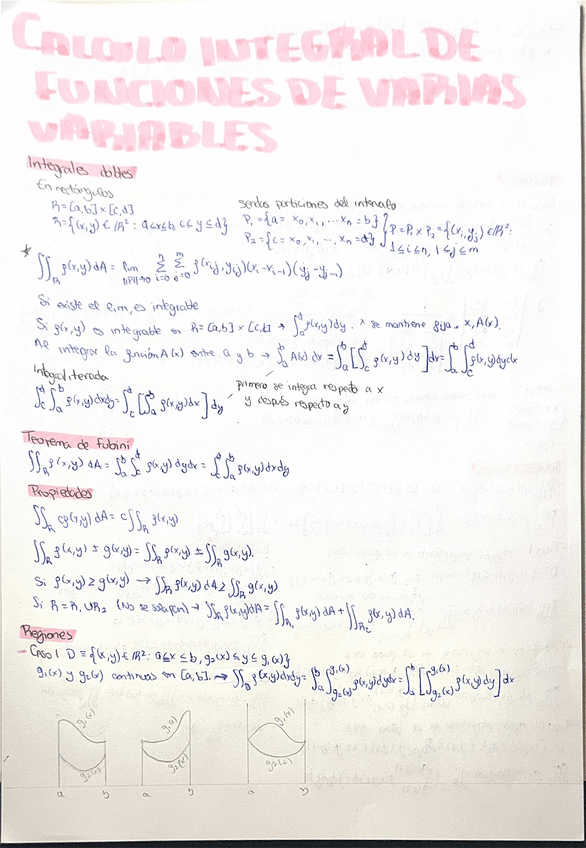 CALCULO INTEGRAL DE
FUNCIONES DE VARIAS
VARIABLES
Integrales dobles
En rectángulos
R=[a,b]×[c,d]
R={(x,y)∈ℝ²: a≤x≤b, c≤y≤d}
sendas particiones del intervalo
P₁={a=x₀,x₁,...xₙ=b}
P₂={c=x₀,x₁,...,xₙ=d}
P=P₁×P₂={(xᵢ,yⱼ)∈ℝ²:
1≤i≤n, 1≤j≤m
* ∬_R f(x,y)dA = lim_{||P||→0} Σ_{i=0}^{n} Σ_{j=0}^{m} f(xᵢⱼ,yᵢⱼ)(xᵢ-xᵢ₋₁)(yⱼ-yⱼ₋₁)
Si existe el lim, es integrable
Si f(x,y) es integrable en R=[a,b]×[c,d] → ∫_c^d f(x,y)dy. x se mantiene fija. x, A(x).
Al integrar la función A(x) entre a y b → ∫_a^b A(x) dx = ∫_a^b [∫_c^d f(x,y) dy] dx = ∫_a^b ∫_c^d f(x,y)dydx
Integral iterada
∫_c^d ∫_a^b f(x,y)dxdy = ∫_c^d [∫_a^b f(x,y)dx] dy
primero se integra respecto a x
y después respecto a y
Teorema de Fubini
∬_R f(x,y) dA = ∫_a^b ∫_c^d f(x,y) dydx = ∫_c^d ∫_a^b f(x,y)dxdy
Propiedades
∬_R cf(x,y) dA = c∬_R f(x,y)
∬_R f(x,y) ± g(x,y) = ∬_R f(x,y) ± ∬_R g(x,y).
Si f(x,y) ≥ g(x,y) → ∬_R f(x,y) dA ≥ ∬_R g(x,y)
Si R=R₁UR₂ (No se solapan) → ∬_R f(x,y)dA = ∬_{R₁} f(x,y)dA + ∬_{R₂} f(x,y) dA.
Regiones
- CASO 1 D ≡ {(x,y)∈ℝ²: a≤x≤b, g₂(x)≤y≤g₁(x)}
g₁(x) y g₂(x) continuas en [a,b]. → ∬_D f(x,y)dxdy = ∫_a^b ∫_{g₂(x)}^{g₁(x)} f(x,y)dydx = ∫_a^b [∫_{g₂(x)}^{g₁(x)} f(x,y)dy] dx
g₁(x) g₁(x) g₁(x)
g₂(x) g₂(x) g₂(x)
a b a b a b